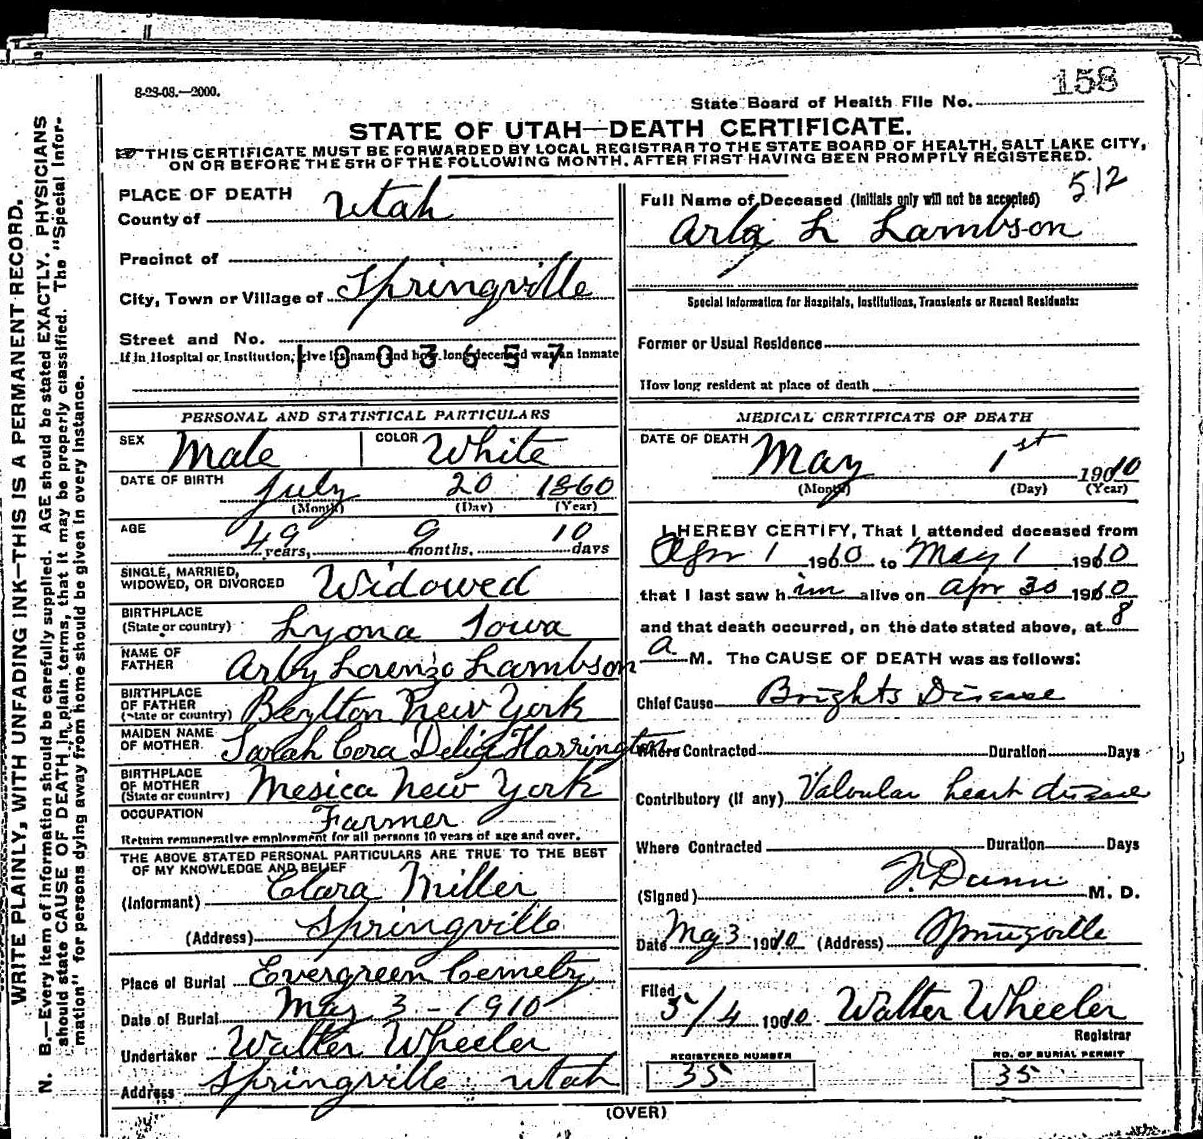 8-23-08.—2000.
158
State Board of Health File No.
STATE OF UTAH—DEATH CERTIFICATE.
THIS CERTIFICATE MUST BE FORWARDED BY LOCAL REGISTRAR TO THE STATE BOARD OF HEALTH, SALT LAKE CITY,
ON OR BEFORE THE 5TH OF THE FOLLOWING MONTH, AFTER FIRST HAVING BEEN PROMPTLY REGISTERED.
WRITE PLAINLY, WITH UNFADING INK—THIS IS A PERMANENT RECORD.
N. B.—Every item of information should be carefully supplied. AGE should be stated EXACTLY. PHYSICIANS
should state CAUSE OF DEATH in plain terms, that it may be properly classified. The "Special Infor-
mation" for persons dying away from home should be given in every instance.
PLACE OF DEATH
County of Utah
Precinct of
City, Town or Village of Springville
Street and No.
If in Hospital or Institution, give its name and how long deceased was an inmate
1003657
PERSONAL AND STATISTICAL PARTICULARS
SEX Male COLOR White
DATE OF BIRTH July 20 1860
(Month) (Day) (Year)
AGE 49 years, 9 months, 10 days
SINGLE, MARRIED,
WIDOWED, OR DIVORCED Widowed
BIRTHPLACE
(State or country) Lyona Iowa
NAME OF
FATHER Arby Lorenzo Lambson
BIRTHPLACE
OF FATHER
(State or country) Beylton New York
MAIDEN NAME
OF MOTHER Sarah Cora Delia Harrington
BIRTHPLACE
OF MOTHER
(State or country) Mesica New York
OCCUPATION Farmer
Return remunerative employment for all persons 10 years of age and over.
THE ABOVE STATED PERSONAL PARTICULARS ARE TRUE TO THE BEST
OF MY KNOWLEDGE AND BELIEF
(Informant) Clara Miller
(Address) Springville
Place of Burial Evergreen Cemetry
Date of Burial May 3 - 1910
Undertaker Walter Wheeler
Address Springville Utah
512
Full Name of Deceased (Initials only will not be accepted)
Arby L Lambson
Special Information for Hospitals, Institutions, Transients or Recent Residents:
Former or Usual Residence
How long resident at place of death
MEDICAL CERTIFICATE OF DEATH
DATE OF DEATH May 1st 1910
(Month) (Day) (Year)
I HEREBY CERTIFY, That I attended deceased from
Apr 1 1910 to May 1 1910
that I last saw him alive on Apr 30 1910
and that death occurred, on the date stated above, at 8
a M. The CAUSE OF DEATH was as follows:
Chief Cause Brights Disease
Where Contracted Duration Days
Contributory (If any) Valvular heart disease
Where Contracted Duration Days
(Signed) F. Dunn M. D.
Date May 3 1910 (Address) Springville
Filed 5/4 1910 Walter Wheeler
Registrar
REGISTERED NUMBER NO. OF BURIAL PERMIT
35 35
(OVER)